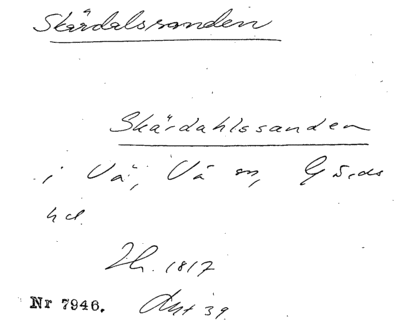 Skärdalssanden
Skärdahlssanden
i Vä, Vä sn, Gärds
hd.
Lh. 1817
Nr 7946. Akt 39.